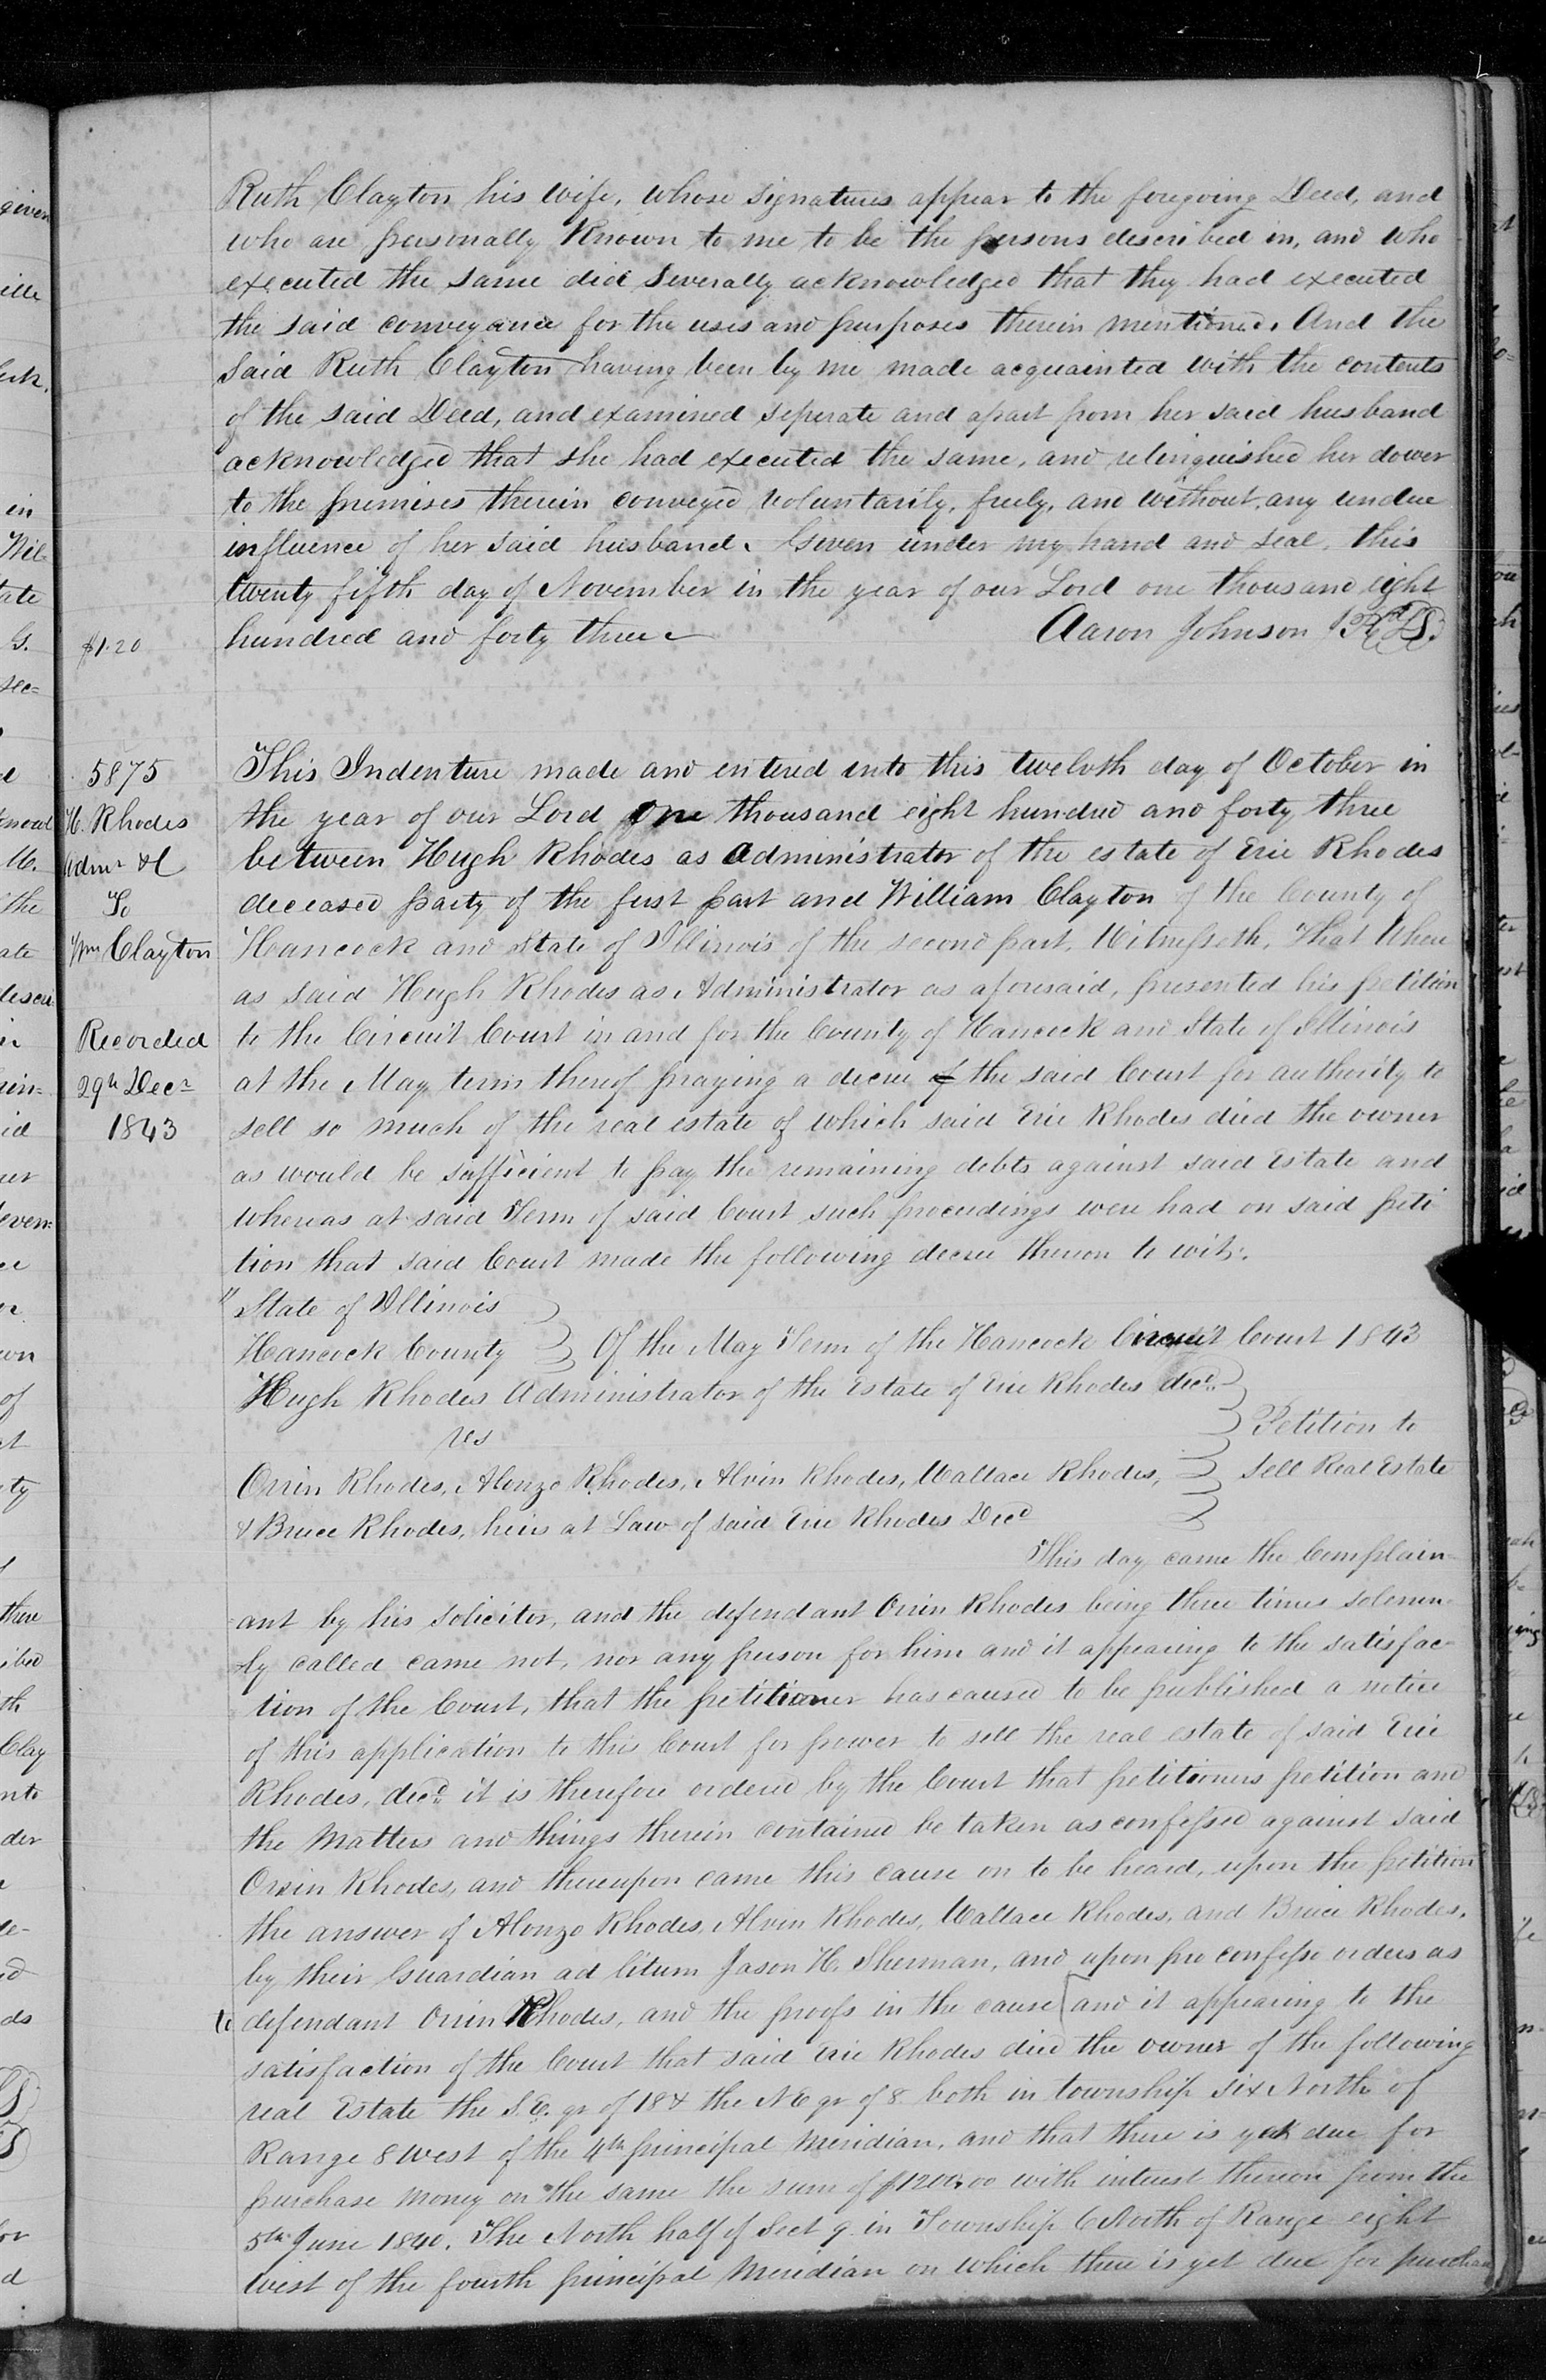 Ruth Clayton his wife, whose signatures appear to the foregoing Deed, and
who are personally Known to me to be the persons described in, and who
executed the same did severally acknowledged that they had executed
the said conveyance for the uses and purposes therein mentioned. And the
said Ruth Clayton having been by me made acquainted with the contents
of the said Deed, and examined seperate and apart from her said husband
acknowledged that she had executed the same, and relinquished her dower
to the premises therein conveyed voluntarily, freely, and without any undue
influence of her said husband. Given under my hand and seal, this
twenty fifth day of November in the year of our Lord one thousand eight
hundred and forty three
Aaron Johnson
$1.20
5875
H. Rhodes
Admr &c
To
Wm Clayton
Recorded
29th Decr
1843
This Indenture made and entered into this twelvth day of October in
the year of our Lord One thousand eight hundred and forty three
between Hugh Rhodes as Administrator of the estate of Erie Rhodes
deceased party of the first part and William Clayton of the County of
Hancock and State of Illinois of the second part, Witnesseth, That Where
as said Hugh Rhodes as Administrator as aforesaid, presented his petition
to the Circuit Court in and for the County of Hancock and State of Illinois
at the May term thereof praying a decree of the said Court for authority to
sell so much of the real estate of which said Erie Rhodes died the owner
as would be sufficient to pay the remaining debts against said Estate and
whereas at said Term of said Court such proceedings were had on said peti
tion that said Court made the following decree thereon to wit:
"State of Illinois
Hancock County } Of the May Term of the Hancock Circuit Court 1843
Hugh Rhodes Administrator of the Estate of Erie Rhodes decd.
vs
Petition to
Orrin Rhodes, Alonzo Rhodes, Alvin Rhodes, Wallace Rhodes, } Sell Real Estate
& Bruce Rhodes, heirs at Law of said Erie Rhodes Decd
This day came the Complain-
ant by his solicitor, and the defendant Orrin Rhodes being three times solemn-
ly called came not, nor any person for him and it appearing to the satisfac-
tion of the Court, that the petitioner has caused to be published a notice
of this application to this Court for power to sell the real estate of said Erie
Rhodes, decd. it is therefore ordered by the Court that petitioners petition and
the Matters and things therein contained be taken as confessed against said
Orrin Rhodes, and thereupon came this cause on to be heard, upon the petition
the answer of Alonzo Rhodes, Alvin Rhodes, Wallace Rhodes, and Bruce Rhodes,
by their Guardian ad litum Jason H. Sherman, and upon pro confesso orders as
to defendant Orrin Rhodes, and the proofs in the cause and it appearing to the
satisfaction of the Court that said Erie Rhodes died the owner of the following
real Estate the S.E. qr of 18 & the NE qr of 8 both in township six North of
Range 8 West of the 4th principal Meridian, and that there is yet due for
purchase money on the same the sum of with interest thereon from the
5th June 1840. The North half of Sect 9 in Township 6 North of Range eight
west of the fourth principal Meridian on which there is yet due for purchase